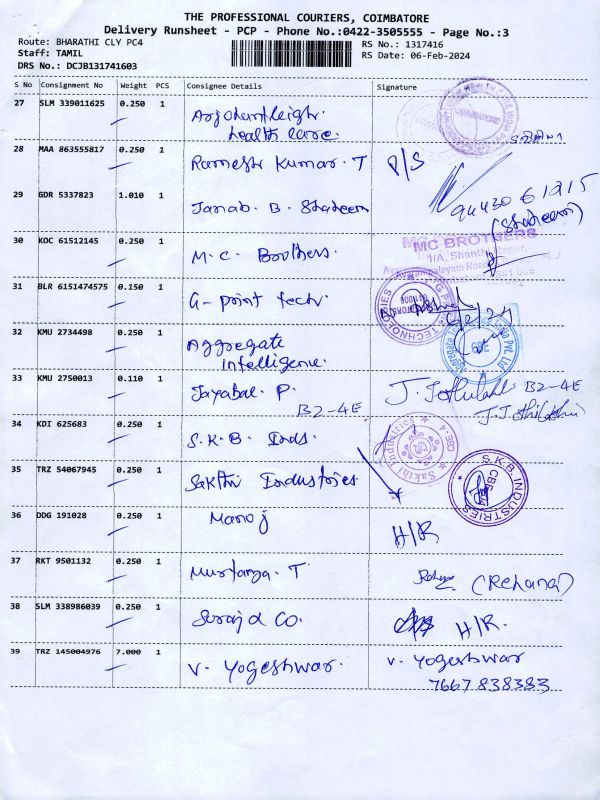 THE PROFESSIONAL COURIERS, COIMBATORE
Delivery Runsheet - PCP - Phone No.:0422-3505555 - Page No.:3
Route: BHARATHI CLY PC4 RS No.: 1317416
Staff: TAMIL RS Date: 06-Feb-2024
DRS No.: DCJB131741603
S No Consignment No Weight PCS Consignee Details Signature
27 SLM 339011625 0.250 1
health care.
28 MAA 863555817 0.250 1 Ramesh Kumar. T P/S
29 GDR 5337823 1.010 1 Janab. B. Shaheem
(Shaheem)
30 KOC 61512145 0.250 1 M. C. Brothers. MC BROTHERS
1/A, Shanthi Nagar,
31 BLR 6151474575 0.150 1 G-point tech. TECHNOLOGIES
32 KMU 2734498 0.250 1 Aggregate
intelligence.
33 KMU 2750013 0.110 1 Jayabal. P. B2-4E
B2-4E
34 KDI 625683 0.250 1 S.K.B. Inds.
35 TRZ 54067945 0.250 1 Sakthi Industries S.K.B. INDUSTRIES
36 DDG 191028 0.250 1 Manoj H/R
37 RKT 9501132 0.250 1 Murtarza. T (Rehana)
38 SLM 338986039 0.250 1 Suraj d Co. H/R.
39 TRZ 145004976 7.000 1 V. Yogeshwar. V. Yogeshwar
7667 838383